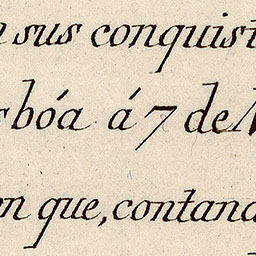 sus conquist
bóa á 7 de
que, contand